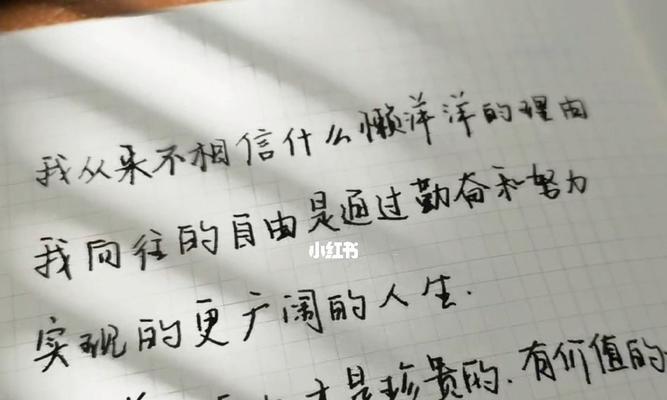 我从来不相信什么懒洋洋的理由
我向往的自由是通过勤奋和努力
小红书
实现的更广阔的人生.
才是珍贵的.有价值的